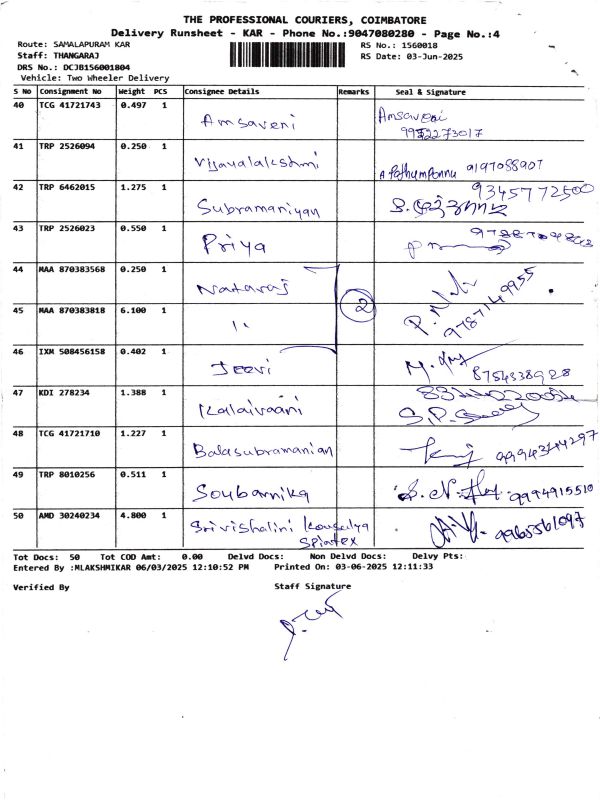 THE PROFESSIONAL COURIERS, COIMBATORE
Delivery Runsheet - KAR - Phone No.:9047080280 - Page No.:4
Route: SAMALAPURAM KAR RS No.: 1560018
Staff: THANGARAJ RS Date: 03-Jun-2025
DRS No.: DCJB156001804
Vehicle: Two Wheeler Delivery
S No Consignment No Weight PCS Consignee Details Remarks Seal & Signature
40 TCG 41721743 0.497 1 Amsaveni Amsaveni
9952273017
41 TRP 2526094 0.250 1 Vijayalakshmi 0197088907
42 TRP 6462015 1.275 1 Subramaniyan 9345772500
43 TRP 2526023 0.550 1 Priya
44 MAA 870383568 0.250 1 Nataraj 9787149955
45 MAA 870383818 6.100 1 " 2
46 IXM 508456158 0.402 1 Jeevi 8754338928
47 KDI 278234 1.388 1 Kalaivaani
48 TCG 41721710 1.227 1 Balasubramanian 9994344297
49 TRP 8010256 0.511 1 Soubarnika 9994915510
50 AMD 30240234 4.800 1 Srivishalini Kousalya 9965561097
Spintex
Tot Docs: 50 Tot COD Amt: 0.00 Delvd Docs: Non Delvd Docs: Delvy Pts:
Entered By :MLAKSHMIKAR 06/03/2025 12:10:52 PM Printed On: 03-06-2025 12:11:33
Verified By Staff Signature